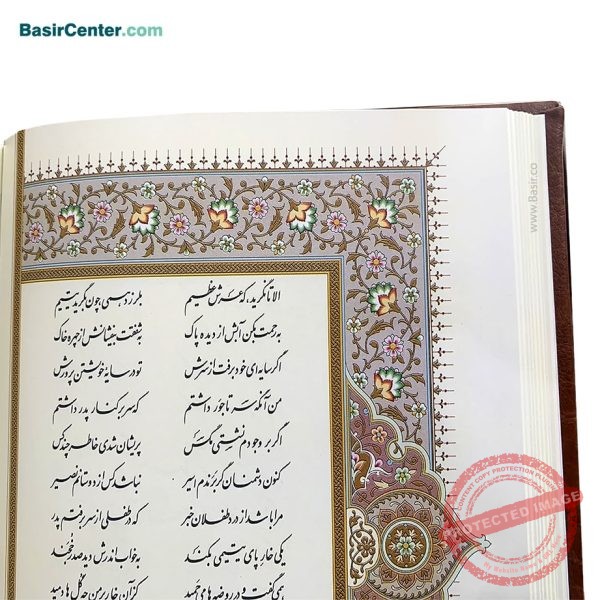 BasirCenter.com
www.Basir.co
الا تا نگرید، که عرش عظیم بلرزد همی چون بگرید یتیم
به رحمت بکن آبش از دیده پاک به شفقت بیفشانش از چهره خاک
اگر سایه ای خود برفت از سرش تو در سایه خویشتن پرورش
من آنگه سر تاجور داشتم که سر بر کنار پدر داشتم
اگر بر وجودم نشستی مگس پریشان شدی خاطر چند کس
کنون دشمنان گر برندم اسیر نباشد کس از دوستانم نصیر
مرا باشد از درد طفلان خبر که در طفلی از سر برفتم پدر
یکی خار پای یتیمی بکند به خواب اندرش دید صدر خجند
همی گفت و در روضه ها می چمید کزآن خار بر من چه گل ها دمید
PROTECTED IMAGE